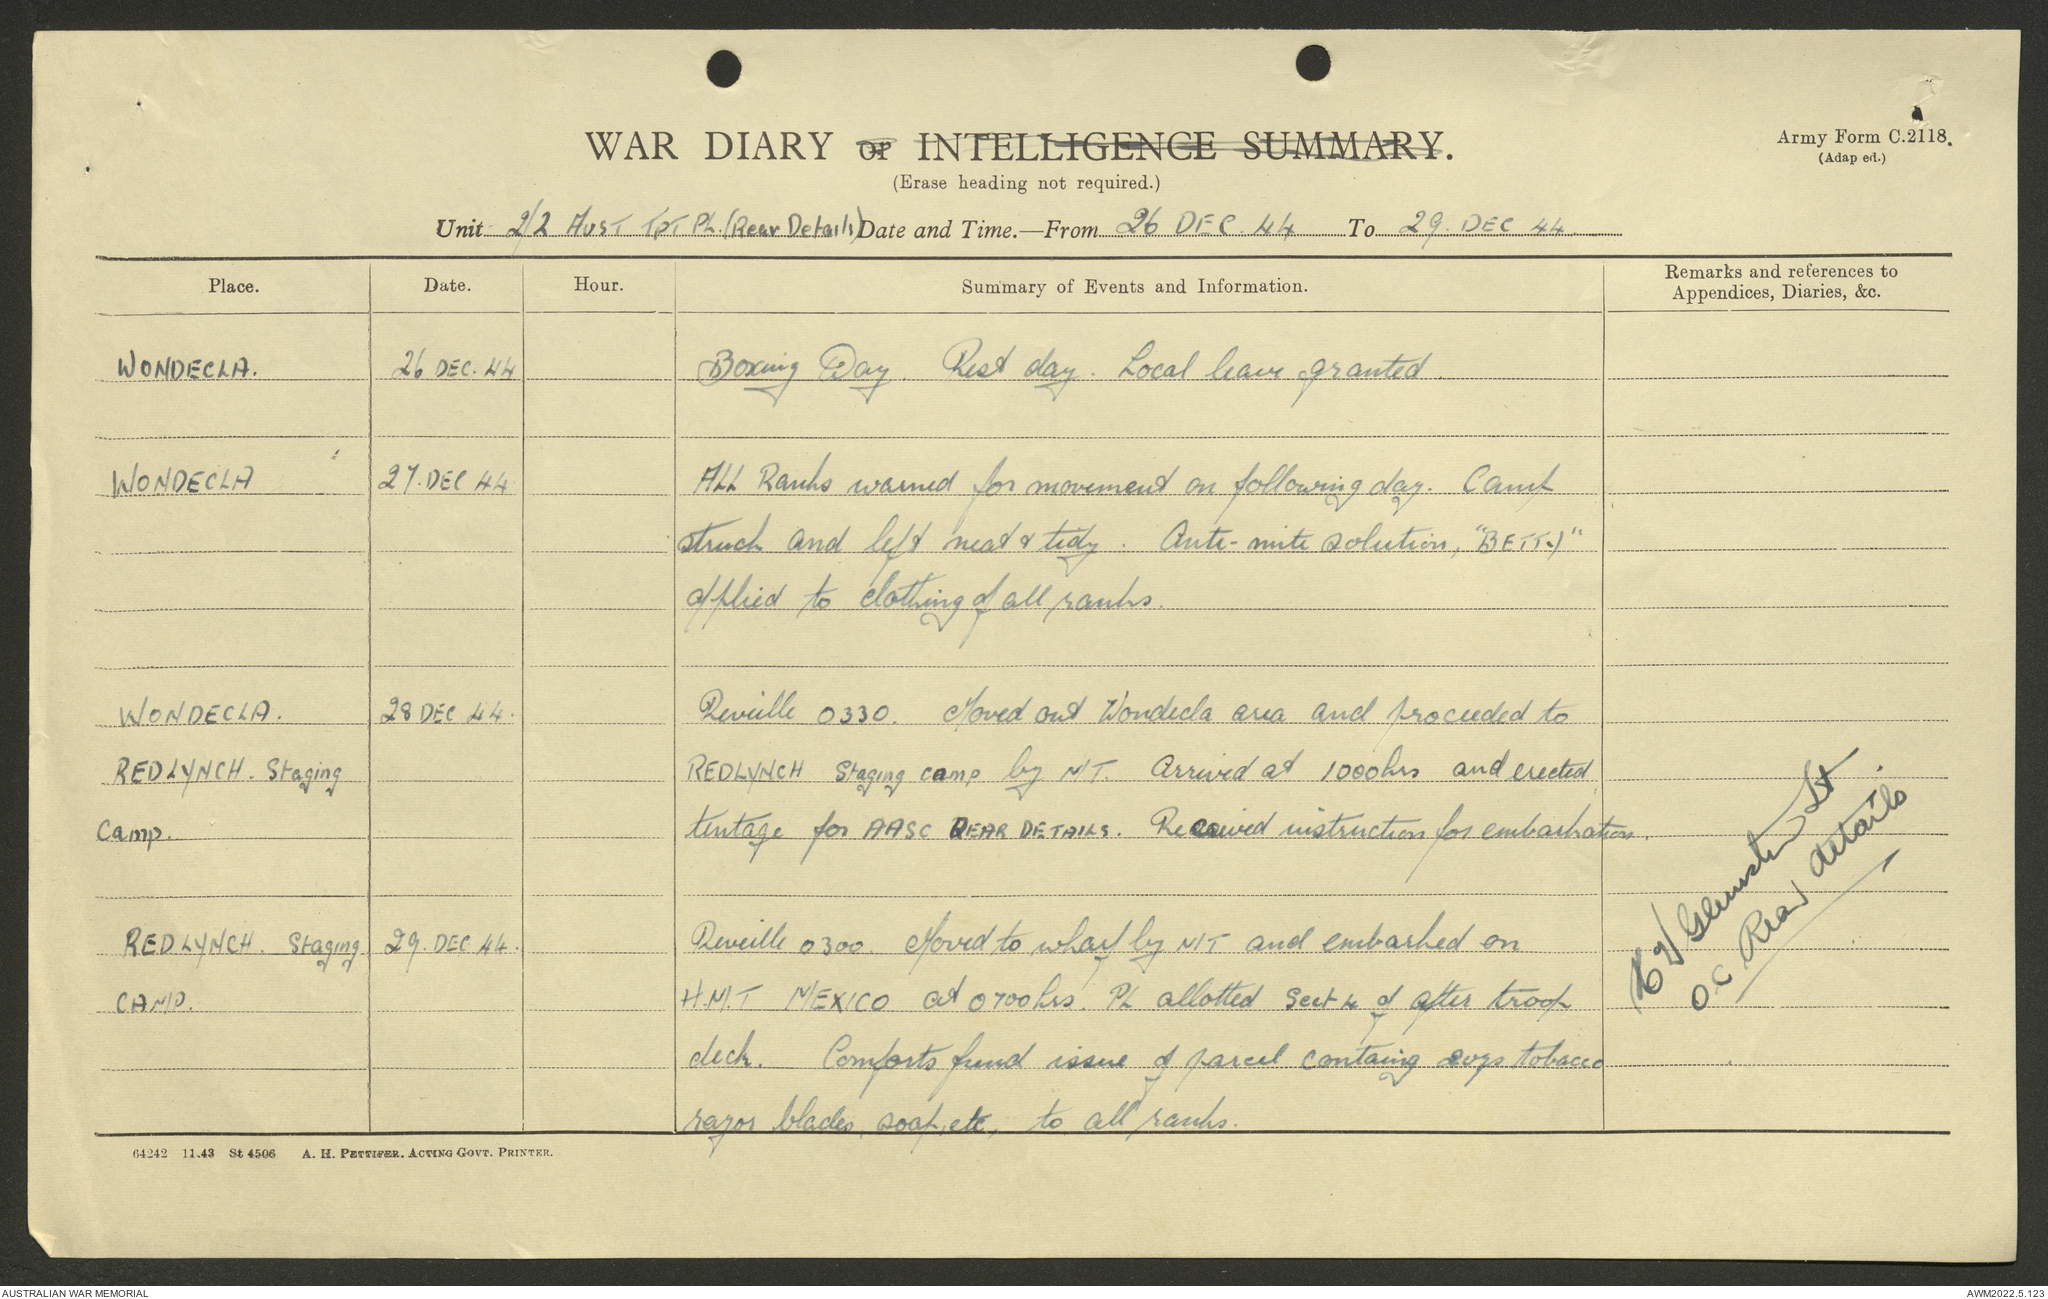 WAR DIARY or INTELLIGENCE SUMMARY.
Army Form C.2118.
(Adap ed.)
(Erase heading not required.)
Unit 2/2 AUST TPT PL. (Rear Details) Date and Time.—From 26 DEC. 44 To 29. DEC 44
Place. Date. Hour. Summary of Events and Information. Remarks and references to Appendices, Diaries, &c.
WONDECLA. 26 DEC. 44 Boxing Day. Rest day. Local leave granted.
WONDECLA 27. DEC 44 ALL Ranks warned for movement on following day. Camp
struck and left neat & tidy. Anti-mite solution, "BETTY"
applied to clothing of all ranks.
WONDECLA. 28 DEC 44. Reveille 0330. Moved out Wondecla area and proceeded to
REDLYNCH. Staging REDLYNCH Staging camp by M.T. Arrived at 1000hrs and erected
Camp. tentage for AASC REAR DETAILS. Received instruction for embarkation.
REDLYNCH. Staging 29. DEC 44. Reveille 0300. Moved to wharf by M.T and embarked on
CAMP. H.M.T MEXICO at 0700hrs. PL allotted Sect 4 of after troop
deck. Comforts fund issue of parcel containg 2ozs tobacco
razor blades, soap, etc, to all ranks.
Lt
O.C Rear details.
64242 11.43 St 4506 A. H. PETTIFER. ACTING GOVT. PRINTER.
AUSTRALIAN WAR MEMORIAL
AWM2022.5.123